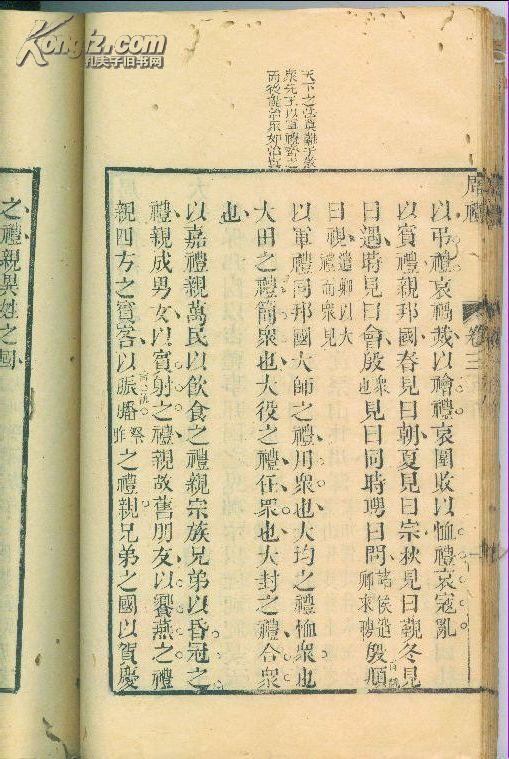 Kongfz.com
孔夫子旧书网
周禮 卷三
以弔禮哀禍烖以禬禮哀圍敗以恤禮哀寇亂
以賓禮親邦國春見曰朝夏見曰宗秋見曰覲冬見
曰遇時見曰會殷衆也見曰同時聘曰問諸侯遣卿來聘殷覜
曰視遣卿以大禮而衆見
以軍禮同邦國大師之禮用衆也大均之禮恤衆也
大田之禮簡衆也大役之禮任衆也大封之禮合衆
也
以嘉禮親萬民以飲食之禮親宗族兄弟以昏冠之
禮親成男女以賓射之禮親故舊朋友以饗燕之禮
親四方之賓客以脤膰祭胙之禮親兄弟之國以賀慶
之禮親異姓之國